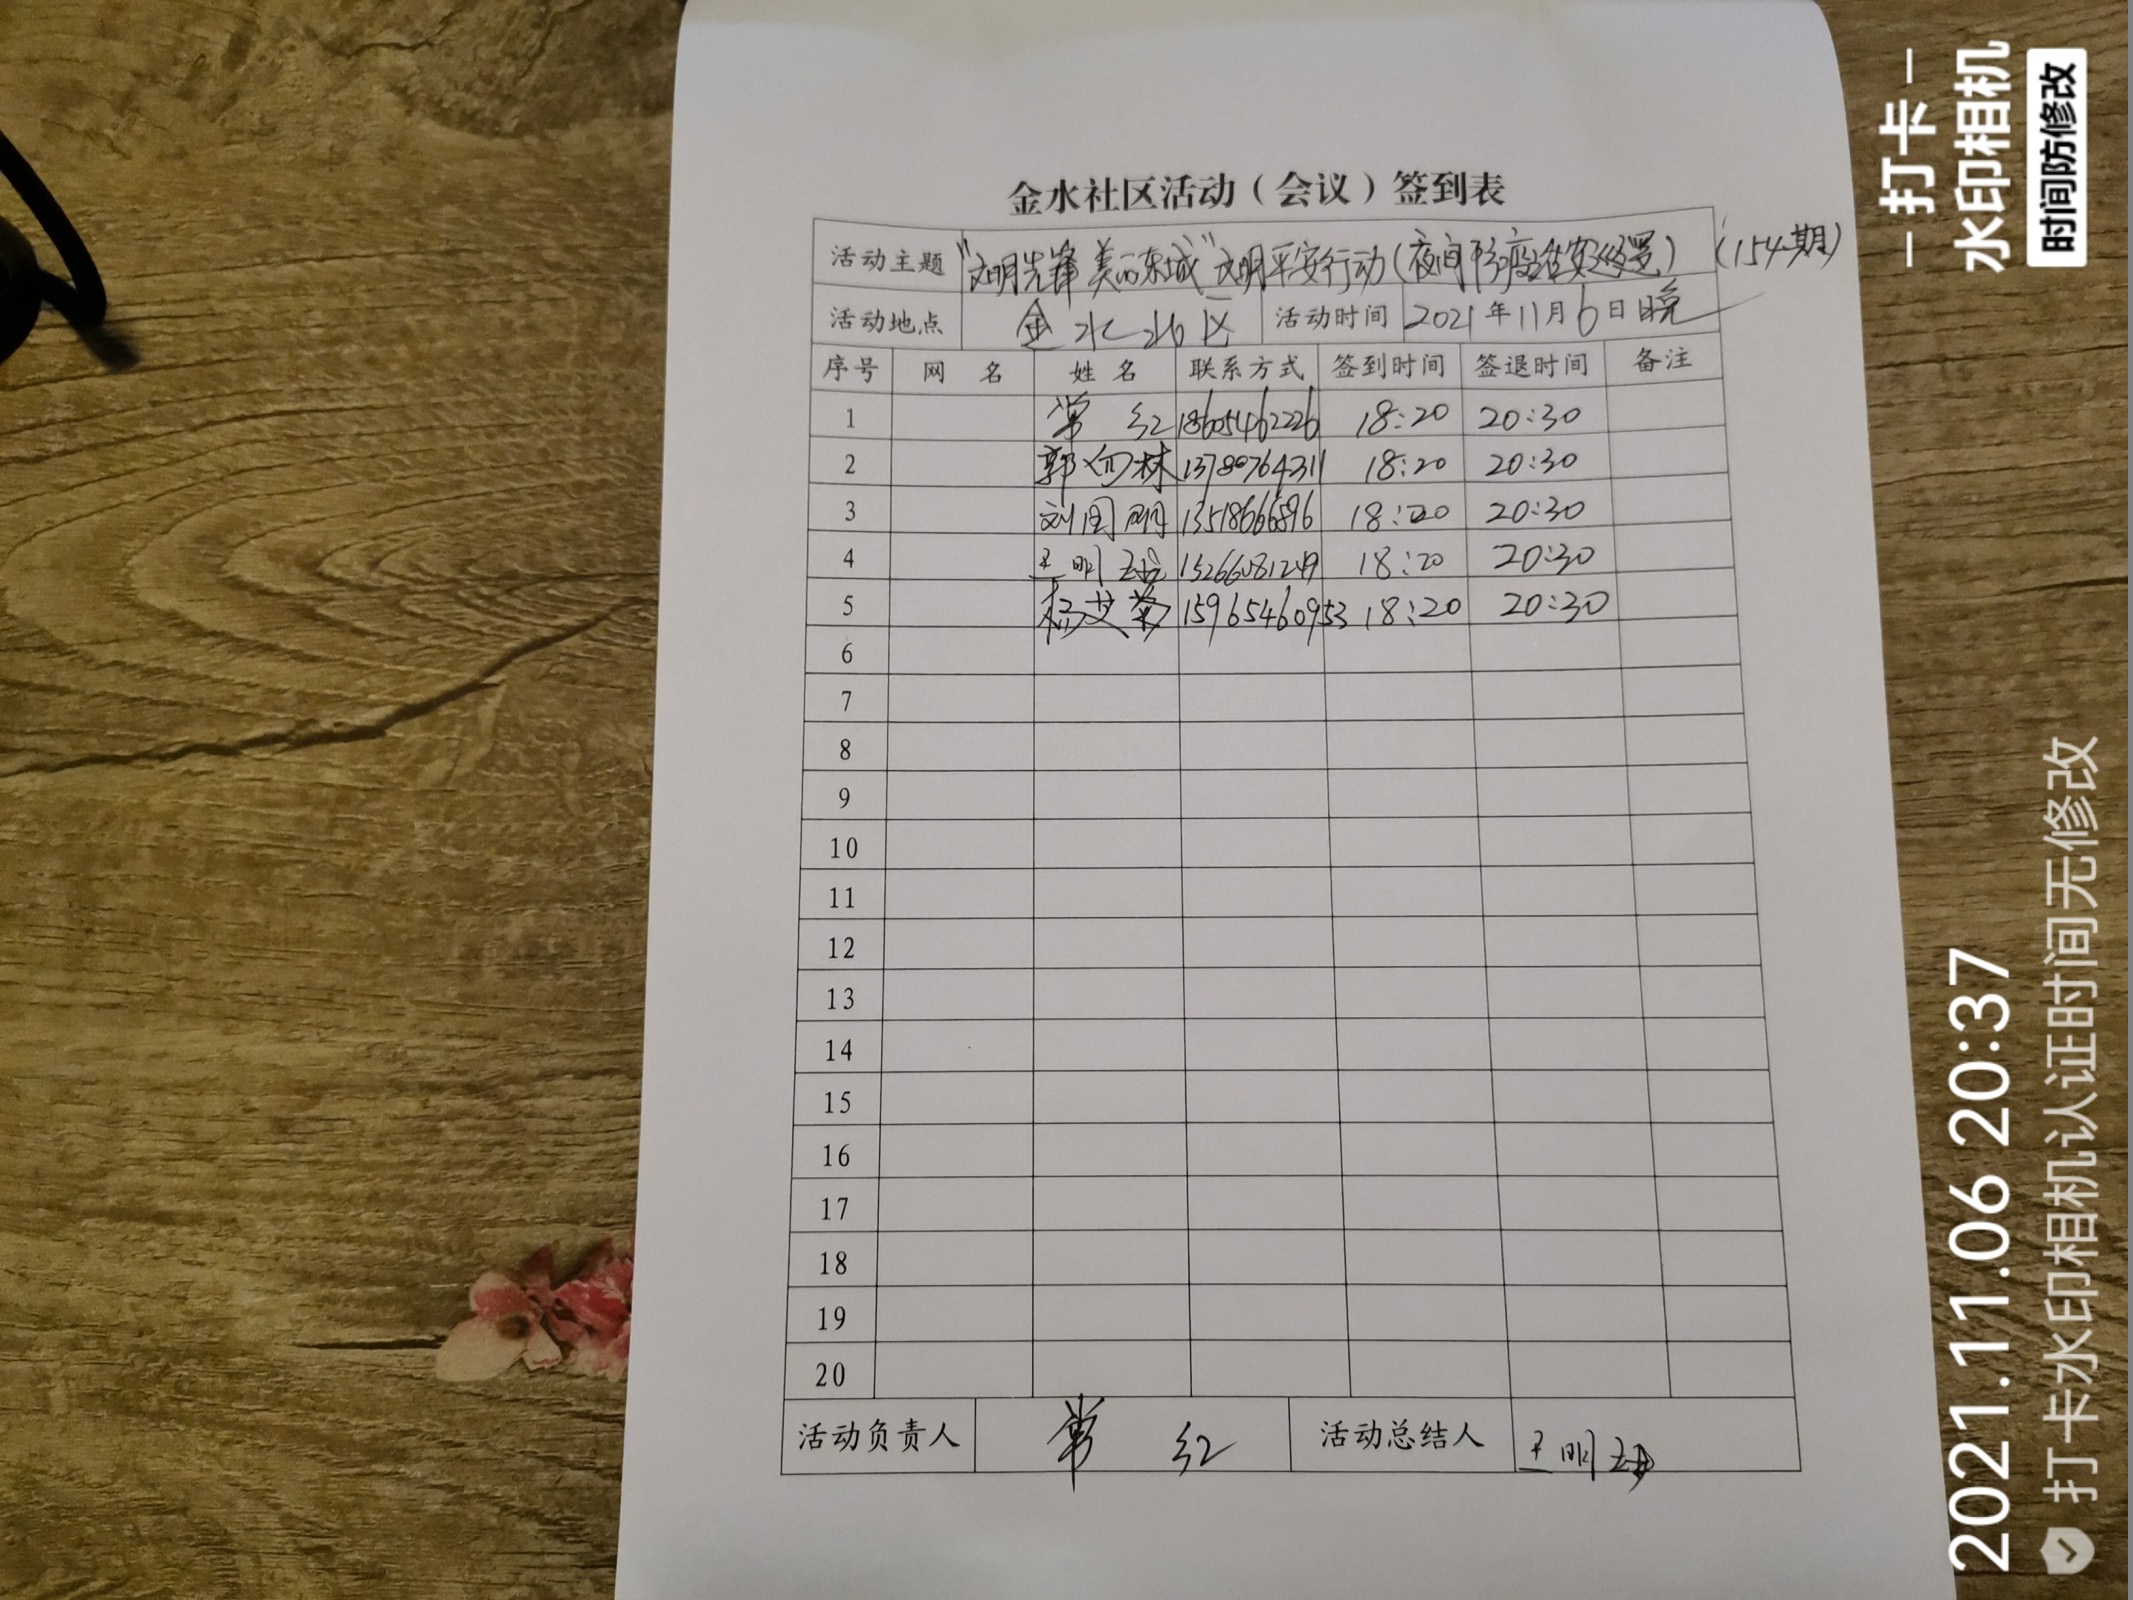 金水社区活动（会议）签到表
活动主题 "文明先锋 美丽东城"文明平安行动(夜间防疫 (154期)
活动地点 金水社区 活动时间 2021年11月6日晚
序号 网 名 姓 名 联系方式 签到时间 签退时间 备注
1 常 红 18605462226 18:20 20:30
2 郭 林 13780764311 18:20 20:30
3 刘国明 13518666896 18:20 20:30
4 王明 15266081249 18:20 20:30
5 杨艾菊 15965460953 18:20 20:30
6
7
8
9
10
11
12
13
14
15
16
17
18
19
20
活动负责人 常 红 活动总结人 王明
打卡
水印相机
时间防修改
2021.11.06 20:37
打卡水印相机认证时间无修改